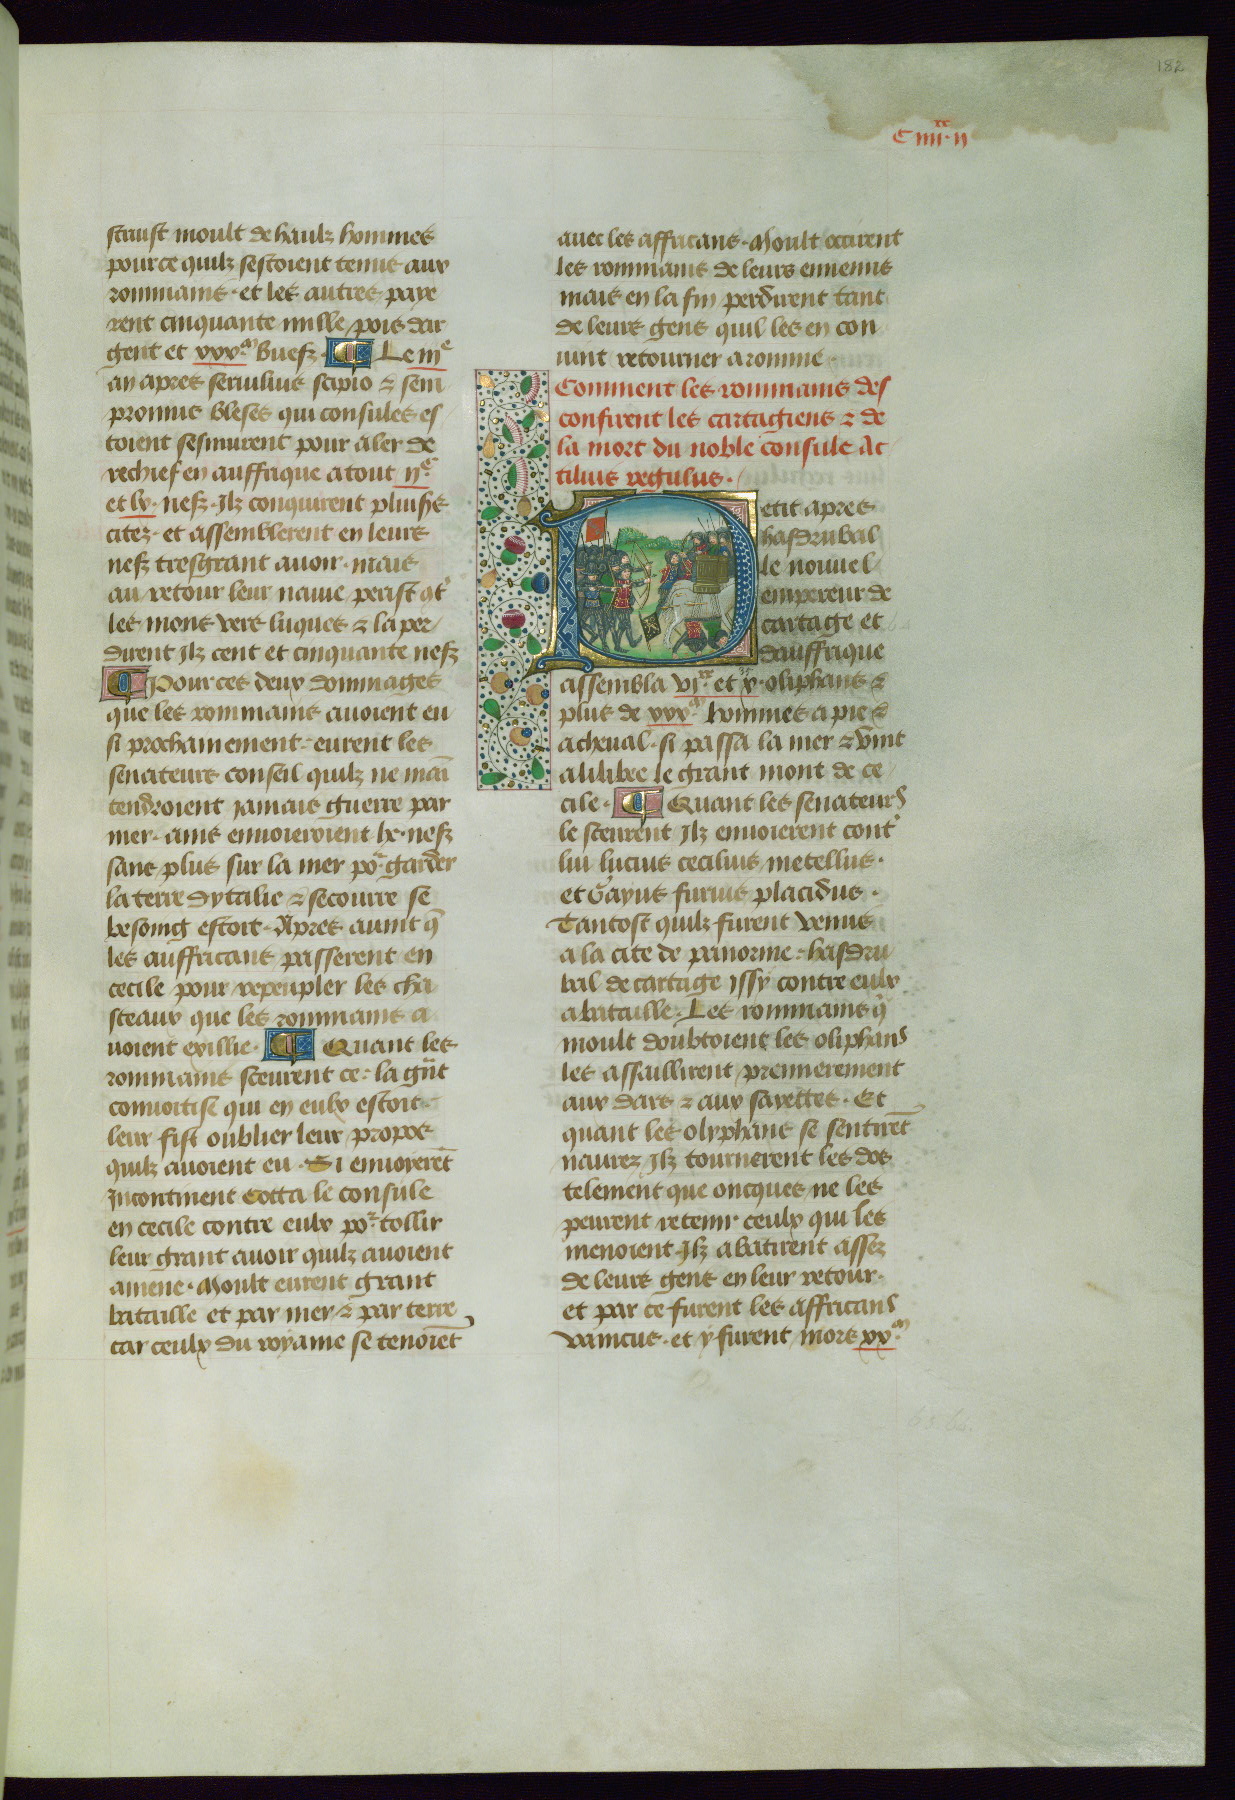 182
C iiii.xx ii
struist moult de haulz hommes
pource quilz sestoient tenus aux
rommains · et les autres paye
rent cinquante mille pois dar
gent et xxx.m buefz · Le iii.e
an apres seruilius scipio ⁊ sem
pronius bleses qui consules es
toient sesmurent pour aler de
rechief en auffrique a tout ii.c
et lx · nefz · Ilz conquirent pluisrs
citez · et assemblerent en leurs
nefz tresgrant auoir · mais
au retour leur nauie perist qt.
les mons vers luques ⁊ la per
dirent Ilz cent et cinquante nefz
Pour ces deux dommages
que les rommains auoient eu
si prochainement · eurent les
senateurs conseil quilz ne mai
tendroient jamais guerre par
mer · ains enuoieroient lx · nefz
sans plus sur la mer por garder
la terre dytalie ⁊ secourre se
besoing estoit · Apres auint q̄
les auffricans passerent en
cecile pour repeupler les cha
steaux que les rommains a
uoient exillie · Quant les
rommains sceurent ce · la gn̄t
conuoitise qui en eulx estoit
leur fist oublier leur propos
quilz auoient eu · Si enuoyerēt
Incontinent Cotta le consule
en cecile contre eulx por tollir
leur grant auoir quilz auoient
amene · Moult eurent grant
bataille et par mer ⁊ par terre
car ceulx du royame se tenoiēt
auec les affricans · Moult occirent
les rommains de leurs ennemis
mais en la fin perdirent tant
de leurs gens quil les en con
uint retourner a romme ·
Comment les rommains des
confirent les cartagiens ⁊ de
la mort du noble consule At
tilius regulus ·
Petit apres
hasdrubal
le nouuel
empereur de
cartage et
dauffrique
assembla vi.xx et x · oliphans ⁊
plus de xxx.m hommes a pie ⁊
a cheual · si passa la mer ⁊ vint
a lilibee le grant mont de ce
cile · Quant les senateurs
le sceurent Ilz enuoierent cont'
lui lucius cecilius metellus ·
et Gayus furius placidus ·
Tantost quilz furent venus
a la cite de panorme · hasdru
bal de cartage Issy contre eulx
a bataille · Les rommains q̄
moult doubtoient les oliphans
les assaillirent premierement
aux dars ⁊ aux sayettes · Et
quant les olyphans se sentirēt
naurez Ilz tournerent les dos
telement que oncques ne les
peurent retenir ceulx qui les
menoient · Ilz abatirent assez
de leurs gens en leur retour ·
et par ce furent les affricans
vaincus · et y furent mors xx.m